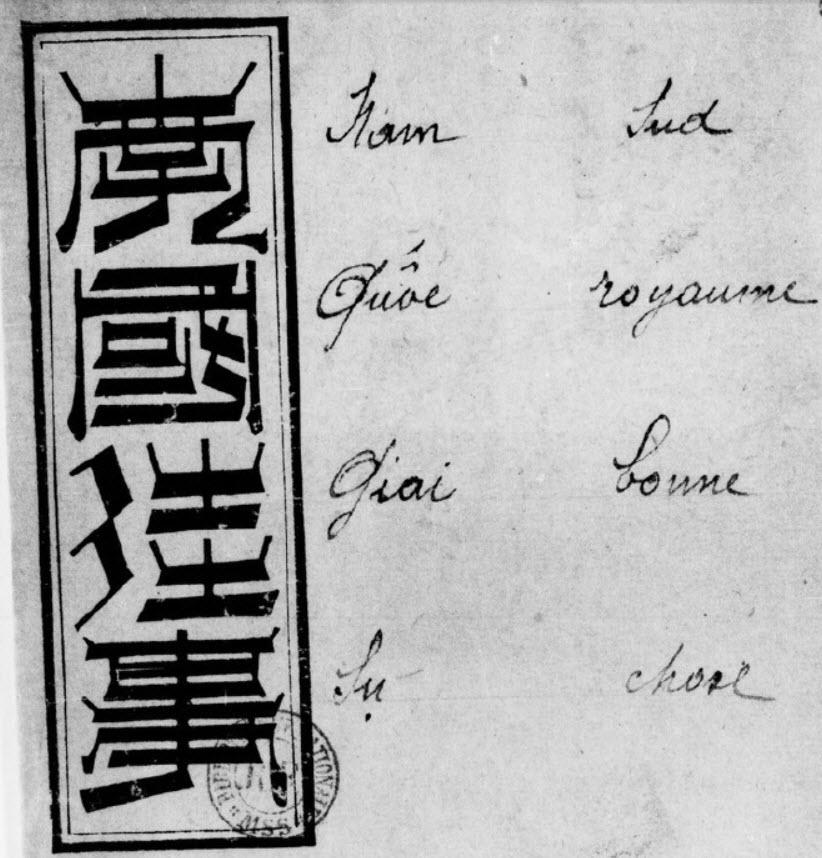 南國佳事
Nam Sud
Quốc royaume
Giai bonne
Sự chose
MSS